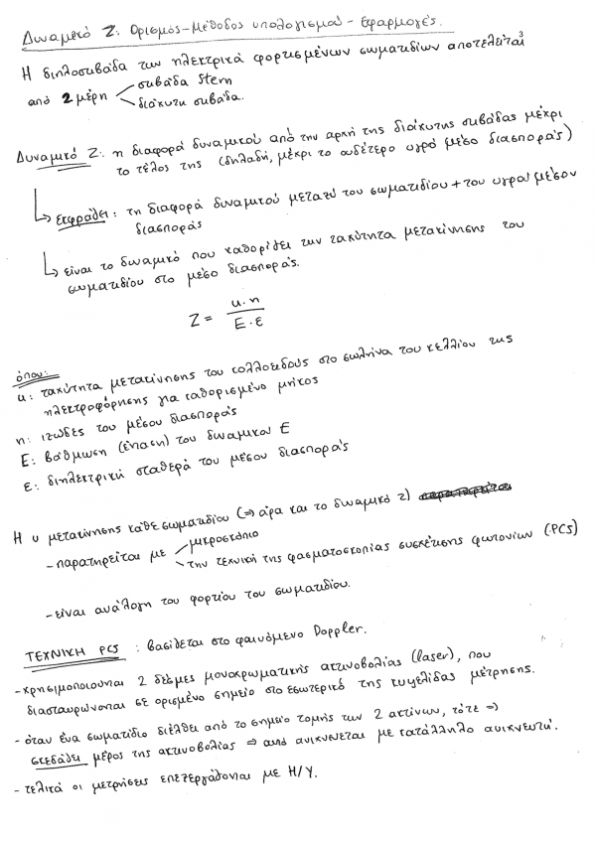 Δυναμικό Ζ: Ορισμός-Μέθοδος υπολογισμού - Εφαρμογές.
Η διπλοστιβάδα των ηλεκτρικά φορτισμένων σωματιδίων αποτελείται
από 2 μέρη
στιβάδα Stern
διάχυτη στιβάδα.
Δυναμικό Ζ: η διαφορά δυναμικού από την αρχή της διάχυτης στιβάδας μέχρι
το τέλος της (δηλαδή, μέχρι το ουδέτερο υγρό μέσο διασποράς)
εκφράζει: τη διαφορά δυναμικού μεταξύ του σωματιδίου + του υγρού μέσου
διασποράς
είναι το δυναμικό που καθορίζει την ταχύτητα μετακίνησης του
σωματιδίου στο μέσο διασποράς.
Z = u·η / E·ε
όπου:
u: ταχύτητα μετακίνησης του κολλοειδούς στο σωλήνα του κελλίου της
ηλεκτροφόρησης για καθορισμένο μήκος
η: ιξώδες του μέσου διασποράς
E: βάθμωση (ένταση) του δυναμικού E
ε: διηλεκτρική σταθερά του μέσου διασποράς
Η υ μετακίνησης κάθε σωματιδίου (⇒ άρα και το δυναμικό z)
-παρατηρείται με
μικροσκόπιο
την τεχνική της φασματοσκοπίας συσχέτισης φωτονίων (PCS)
-είναι ανάλογη του φορτίου του σωματιδίου.
ΤΕΧΝΙΚΗ PCS: βασίζεται στο φαινόμενο Doppler.
-χρησιμοποιούνται 2 δέσμες μονοχρωματικής ακτινοβολίας (laser), που
διασταυρώνονται σε ορισμένο σημείο στο εσωτερικό της κυψελίδας μέτρησης.
-όταν ένα σωματίδιο διέλθει από το σημείο τομής των 2 ακτίνων, τότε ⇒
σκεδάζει μέρος της ακτινοβολίας ⇒ αυτή ανιχνεύεται με κατάλληλο ανιχνευτή.
-τελικά οι μετρήσεις επεξεργάζονται με Η/Υ.